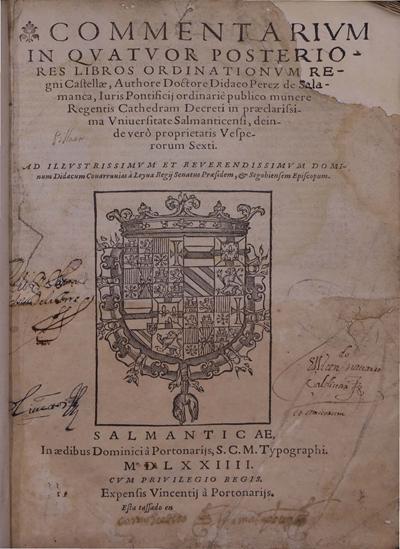 COMMENTARIVM
IN QVATVOR POSTERIO-
RES LIBROS ORDINATIONVM RE-
gni Castellæ, Authore Doctore Didaco Perez de Sala-
manca, Iuris Pontificij ordinariè publico munere
Regentis Cathedram Decreti in præclarissi-
ma Vniuersitate Salmanticensi, dein-
de verò proprietatis Vespe-
rorum Sexti.
AD ILLVSTRISSIMVM ET REVERENDISSIMVM DOMI-
num Didacum Couarruuias à Leyua Regij Senatus Præsidem, & Segobiensem Episcopum.
SALMANTICAE,
In ædibus Dominici à Portonarijs, S. C. M. Typographi.
M D LXXIIII.
CVM PRIVILEGIO REGIS.
Expensis Vincentij à Portonarijs.
Esta tassado en